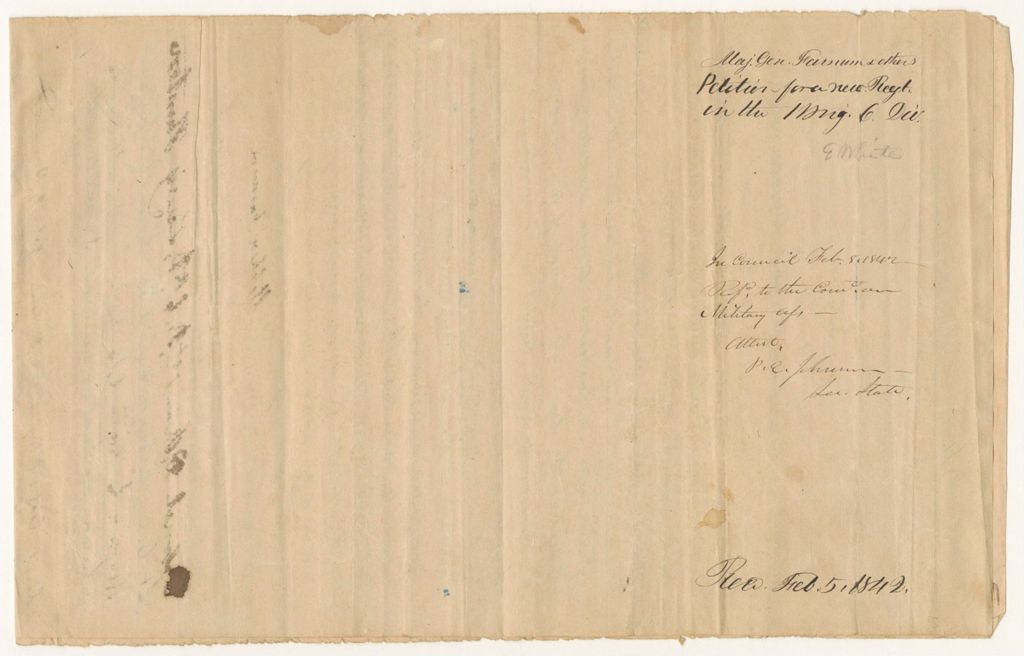 Maj. Gen. Farnum & others
Petition for a new Regt.
in the 1 Brig. 6. Div.
E White
In Council Feb. 8. 1842
Refd. to the Comee. on
Military affs
Attest,
P. C. Johnson
Sec. State.
Recd. Feb. 5, 1842.